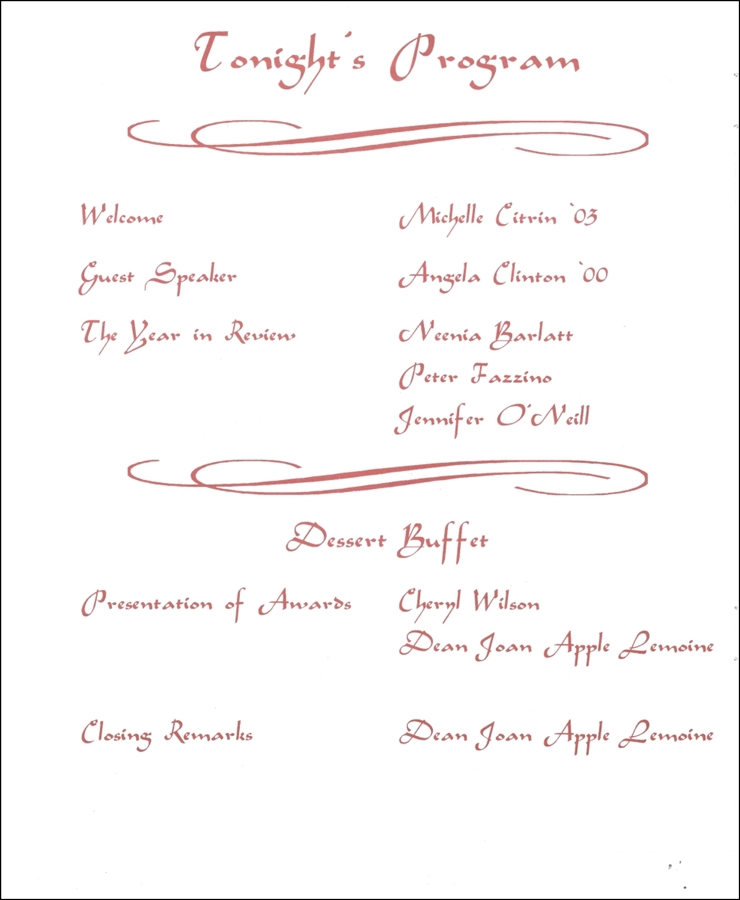 Tonight's Program
Welcome Michelle Citrin `03
Guest Speaker Angela Clinton `00
The Year in Review Neenia Barlatt
Peter Fazzino
Jennifer O'Neill
Dessert Buffet
Presentation of Awards Cheryl Wilson
Dean Joan Apple Lemoine
Closing Remarks Dean Joan Apple Lemoine